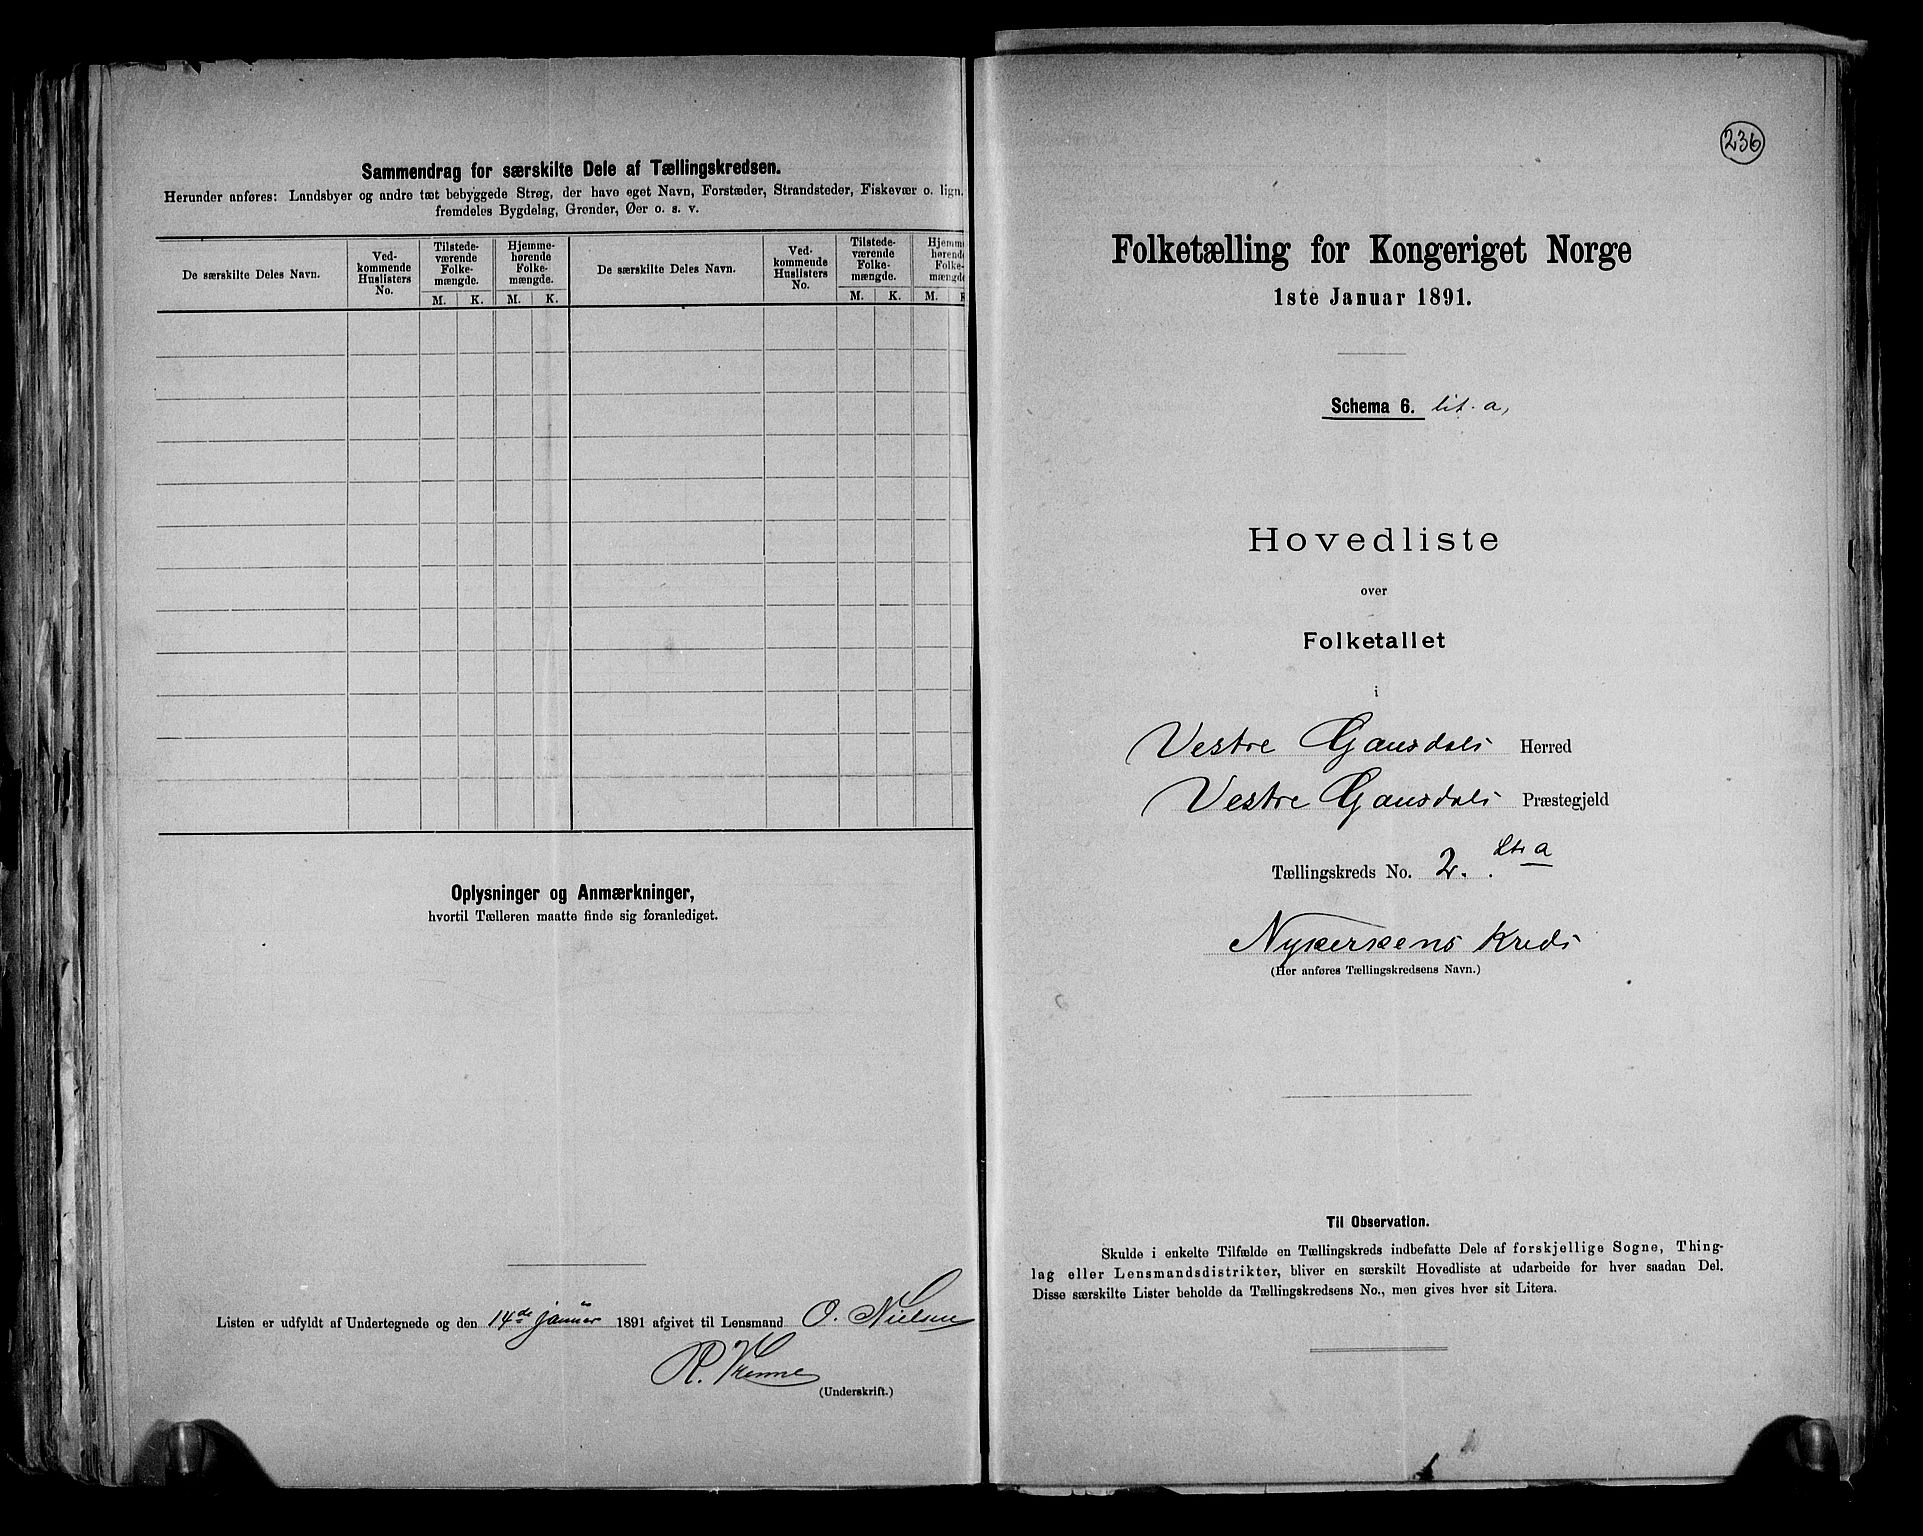 Sammendrag for særskilte Dele af Tællingskredsen.
Herunder anføres: Landsbyer og andre tæt bebyggede Strøg, der have eget Navn, Forstæder, Strandsteder, Fiskevær o. lign.
fremdeles Bygdelag, Grender, Øer o. s. v.
De særskilte Deles Navn.
Ved-
kommende
Huslisters
No.
Tilstede-
værende
Folke-
mængde.
M. K.
Hjemme-
hørende
Folke-
mængde.
M. K.
De særskilte Deles Navn.
Ved-
kommende
Huslisters
No.
Tilstede-
værende
Folke-
mængde.
M. K.
Hjemme
hørende
Folke-
mængde
M. K
Oplysninger og Anmærkninger,
hvortil Tælleren maatte finde sig foranlediget.
Listen er udfyldt af Undertegnede og den 14de januar 1891 afgivet til Lensmand O. Nielsen
(Underskrift.)
236
Folketælling for Kongeriget Norge
1ste Januar 1891.
Schema 6. lit. a,
Hovedliste
over
Folketallet
i
Vestre Gausdals Herred
Vestre Gausdals Præstegjeld
Tællingskreds No. 2. Ltr a
Nykirkens Kreds
(Her anføres Tællingskredsens Navn.)
Til Observation.
Skulde i enkelte Tilfælde en Tællingskreds indbefatte Dele af forskjellige Sogne, Thing-
lag eller Lensmandsdistrikter, bliver en særskilt Hovedliste at udarbeide for hver saadan Del.
Disse særskilte Lister beholde da Tællingskredsens No., men gives hver sit Litera.